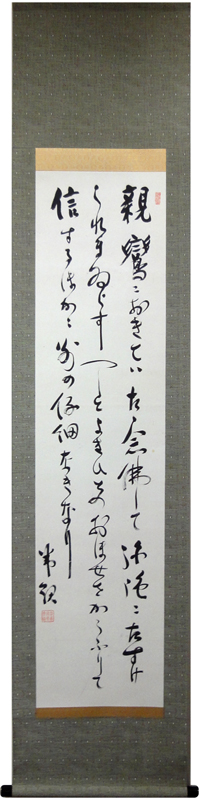 親鸞ニおきてハ たゝ念佛して 弥陀ニたすけ
られまゐらすへしと よきひとの おほせをかうふりて
信するほかニ 別の仔細なきなり